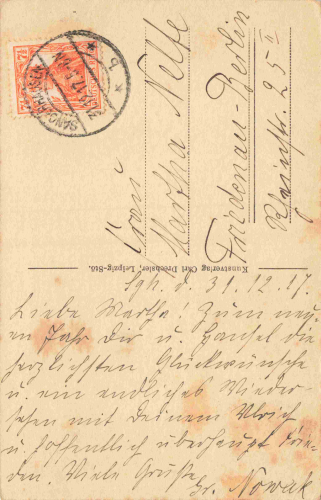 7½
SANGERHAUSEN
* b *
Frau
Martha Nelte
Friedenau-Berlin
Rheinstr. 25 II
Kunstverlag Carl Drechsler, Leipzig-Stö.
Sgh. d. 31.12.17.
Liebe Martha! Zum neu-
en Jahr Dir u. Hansel die
herzlichsten Glückwünsche
u. ein endliches Wieder-
sehen mit Deinem Ulrich
u. hoffentlich überhaupt Frie-
den. Viele Grüße
Nowak